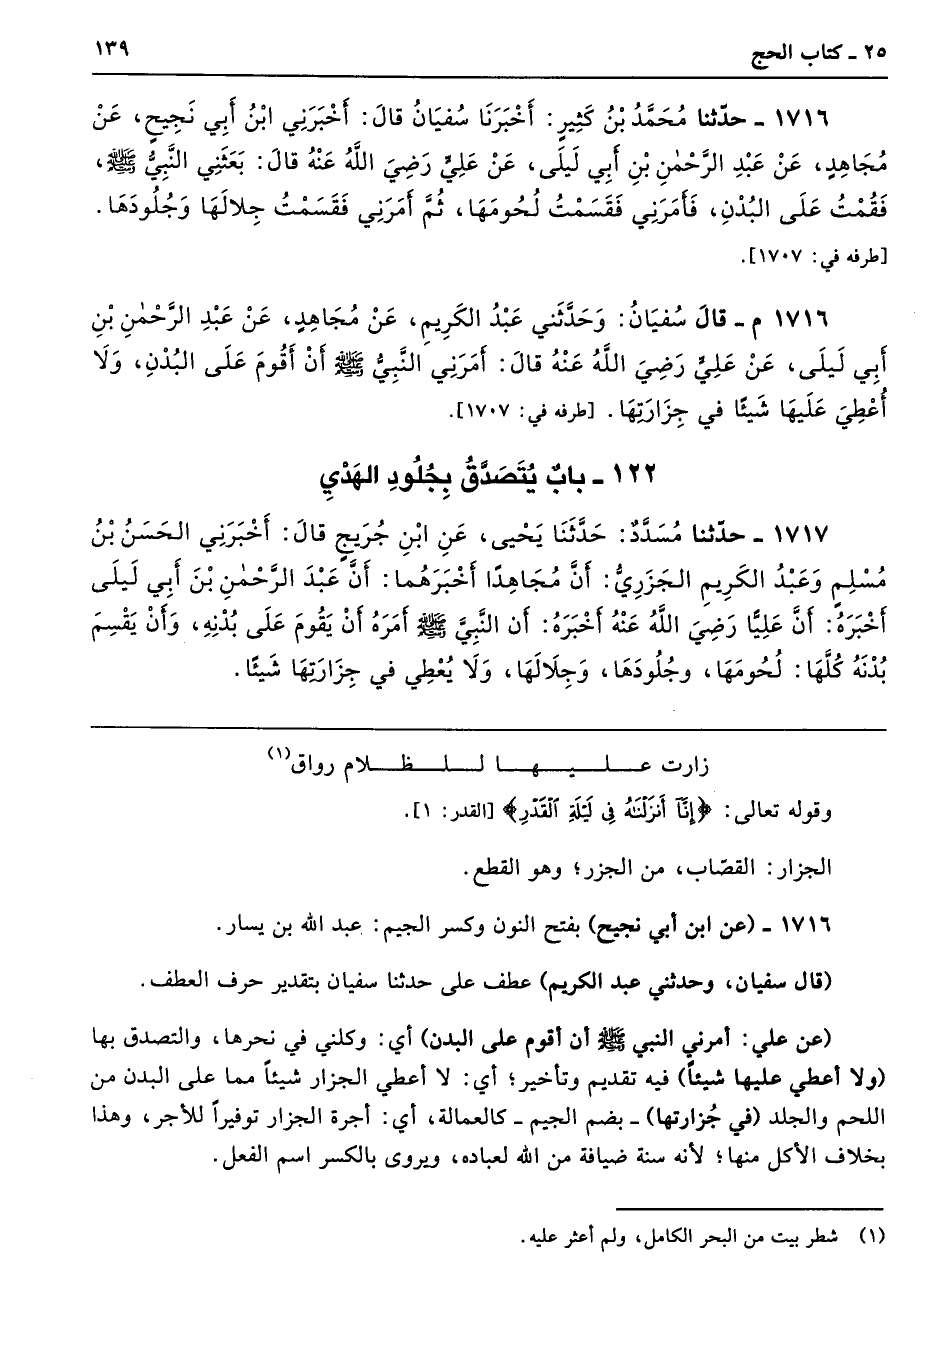 ٢٥ ـ كتاب الحج
١٣٩
١٧١٦ ـ حدّثنا مُحَمَّدُ بْنُ كَثِيرٍ: أَخْبَرَنَا سُفيَانُ قالَ: أَخْبَرَنِي ابْنُ أَبِي نَجِيحٍ، عَنْ
مُجَاهِدٍ، عَنْ عَبْدِ الرَّحْمٰنِ بْنِ أَبِي لَيلَى، عَنْ عَلِيٍّ رَضِيَ اللَّهُ عَنْهُ قالَ: بَعَثَنِي النَّبِيُّ ﷺ،
فَقُمْتُ عَلَى البُدْنِ، فَأَمَرَنِي فَقَسَمْتُ لُحُومَهَا، ثُمَّ أَمَرَنِي فَقَسَمْتُ جِلالَهَا وَجُلُودَهَا.
[طرفه في: ١٧٠٧].
١٧١٦ م ـ قالَ سُفيَانُ: وَحَدَّثَني عَبْدُ الكَرِيمِ، عَنْ مُجَاهِدٍ، عَنْ عَبْدِ الرَّحْمٰنِ بْنِ
أَبِي لَيلَى، عَنْ عَلِيٍّ رَضِيَ اللَّهُ عَنْهُ قالَ: أَمَرَنِي النَّبِيُّ ﷺ أَنْ أَقُومَ عَلَى البُدْنِ، وَلَا
أُعْطِيَ عَلَيهَا شَيئًا في جِزَارَتِهَا. [طرفه في: ١٧٠٧].
١٢٢ ـ بابٌ يُتَصَدَّقُ بِجُلُودِ الهَدْيِ
١٧١٧ ـ حدّثنا مُسَدَّدٌ: حَدَّثَنَا يَحْيى، عَنِ ابْنِ جُرَيجٍ قالَ: أَخْبَرَنِي الحَسَنُ بْنُ
مُسْلِمٍ وَعَبْدُ الكَرِيمِ الجَزَرِيُّ: أَنَّ مُجَاهِدًا أَخْبَرَهُما: أَنَّ عَبْدَ الرَّحْمٰنِ بْنَ أَبِي لَيلَى
أَخْبَرَهُ: أَنَّ عَلِيًّا رَضِيَ اللَّهُ عَنْهُ أَخْبَرَهُ: أَن النَّبِيَّ ﷺ أَمَرَهُ أَنْ يَقُومَ عَلَى بُدْنِهِ، وَأَنْ يَقْسِمَ
بُدْنَهُ كُلَّهَا: لُحُومَهَا، وجُلُودَهَا، وَجِلَالَهَا، وَلَا يُعْطِي في جِزَارَتِهَا شَيئًا.
زارت عـــلـــيـــهـــا لـــلـــظـــلام رواق(١)
وقوله تعالى: ﴿إِنَّآ أَنزَلْنَٰهُ فِى لَيْلَةِ ٱلْقَدْرِ﴾ [القدر: ١].
الجزار: القصّاب، من الجزر؛ وهو القطع.
١٧١٦ ـ (عن ابن أبي نجيح) بفتح النون وكسر الجيم: عبد الله بن يسار.
(قال سفيان، وحدثني عبد الكريم) عطف على حدثنا سفيان بتقدير حرف العطف.
(عن علي: أمرني النبي ﷺ أن أقوم على البدن) أي: وكلني في نحرها، والتصدق بها
(ولا أعطي عليها شيئاً) فيه تقديم وتأخير؛ أي: لا أعطي الجزار شيئاً مما على البدن من
اللحم والجلد (في جُزارتها) ـ بضم الجيم ـ كالعمالة، أي: أجرة الجزار توفيراً للأجر، وهذا
بخلاف الأكل منها؛ لأنه سنة ضيافة من الله لعباده، ويروى بالكسر اسم الفعل.
(١) شطر بيت من البحر الكامل، ولم أعثر عليه.